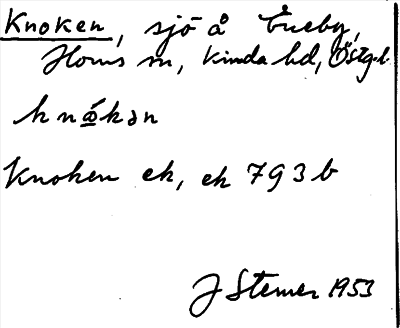 Knoken, sjö å
Horns sn, Kinda hd, Östg.l.
knókən
Knoken ek, ek 793 b
J Sterner 1953